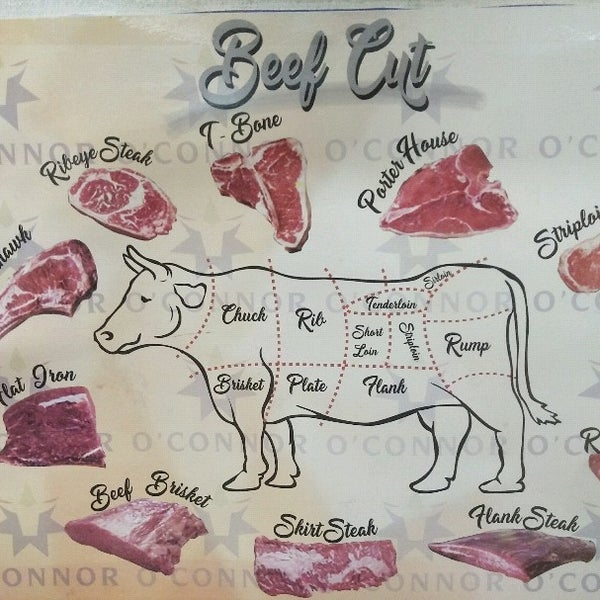 Beef Cut
T-Bone
Ribeye Steak
Porter House
O'CONNOR O'CONNOR
Striploin
Sirloin
Tenderloin
Chuck
Rib
Short
Loin
Striploin
Rump
Brisket
Plate
Flank
Flat Iron
O'CONNOR O'CONNOR
Beef Brisket
Skirt Steak
Flank Steak
O'CONNOR O'CONNOR